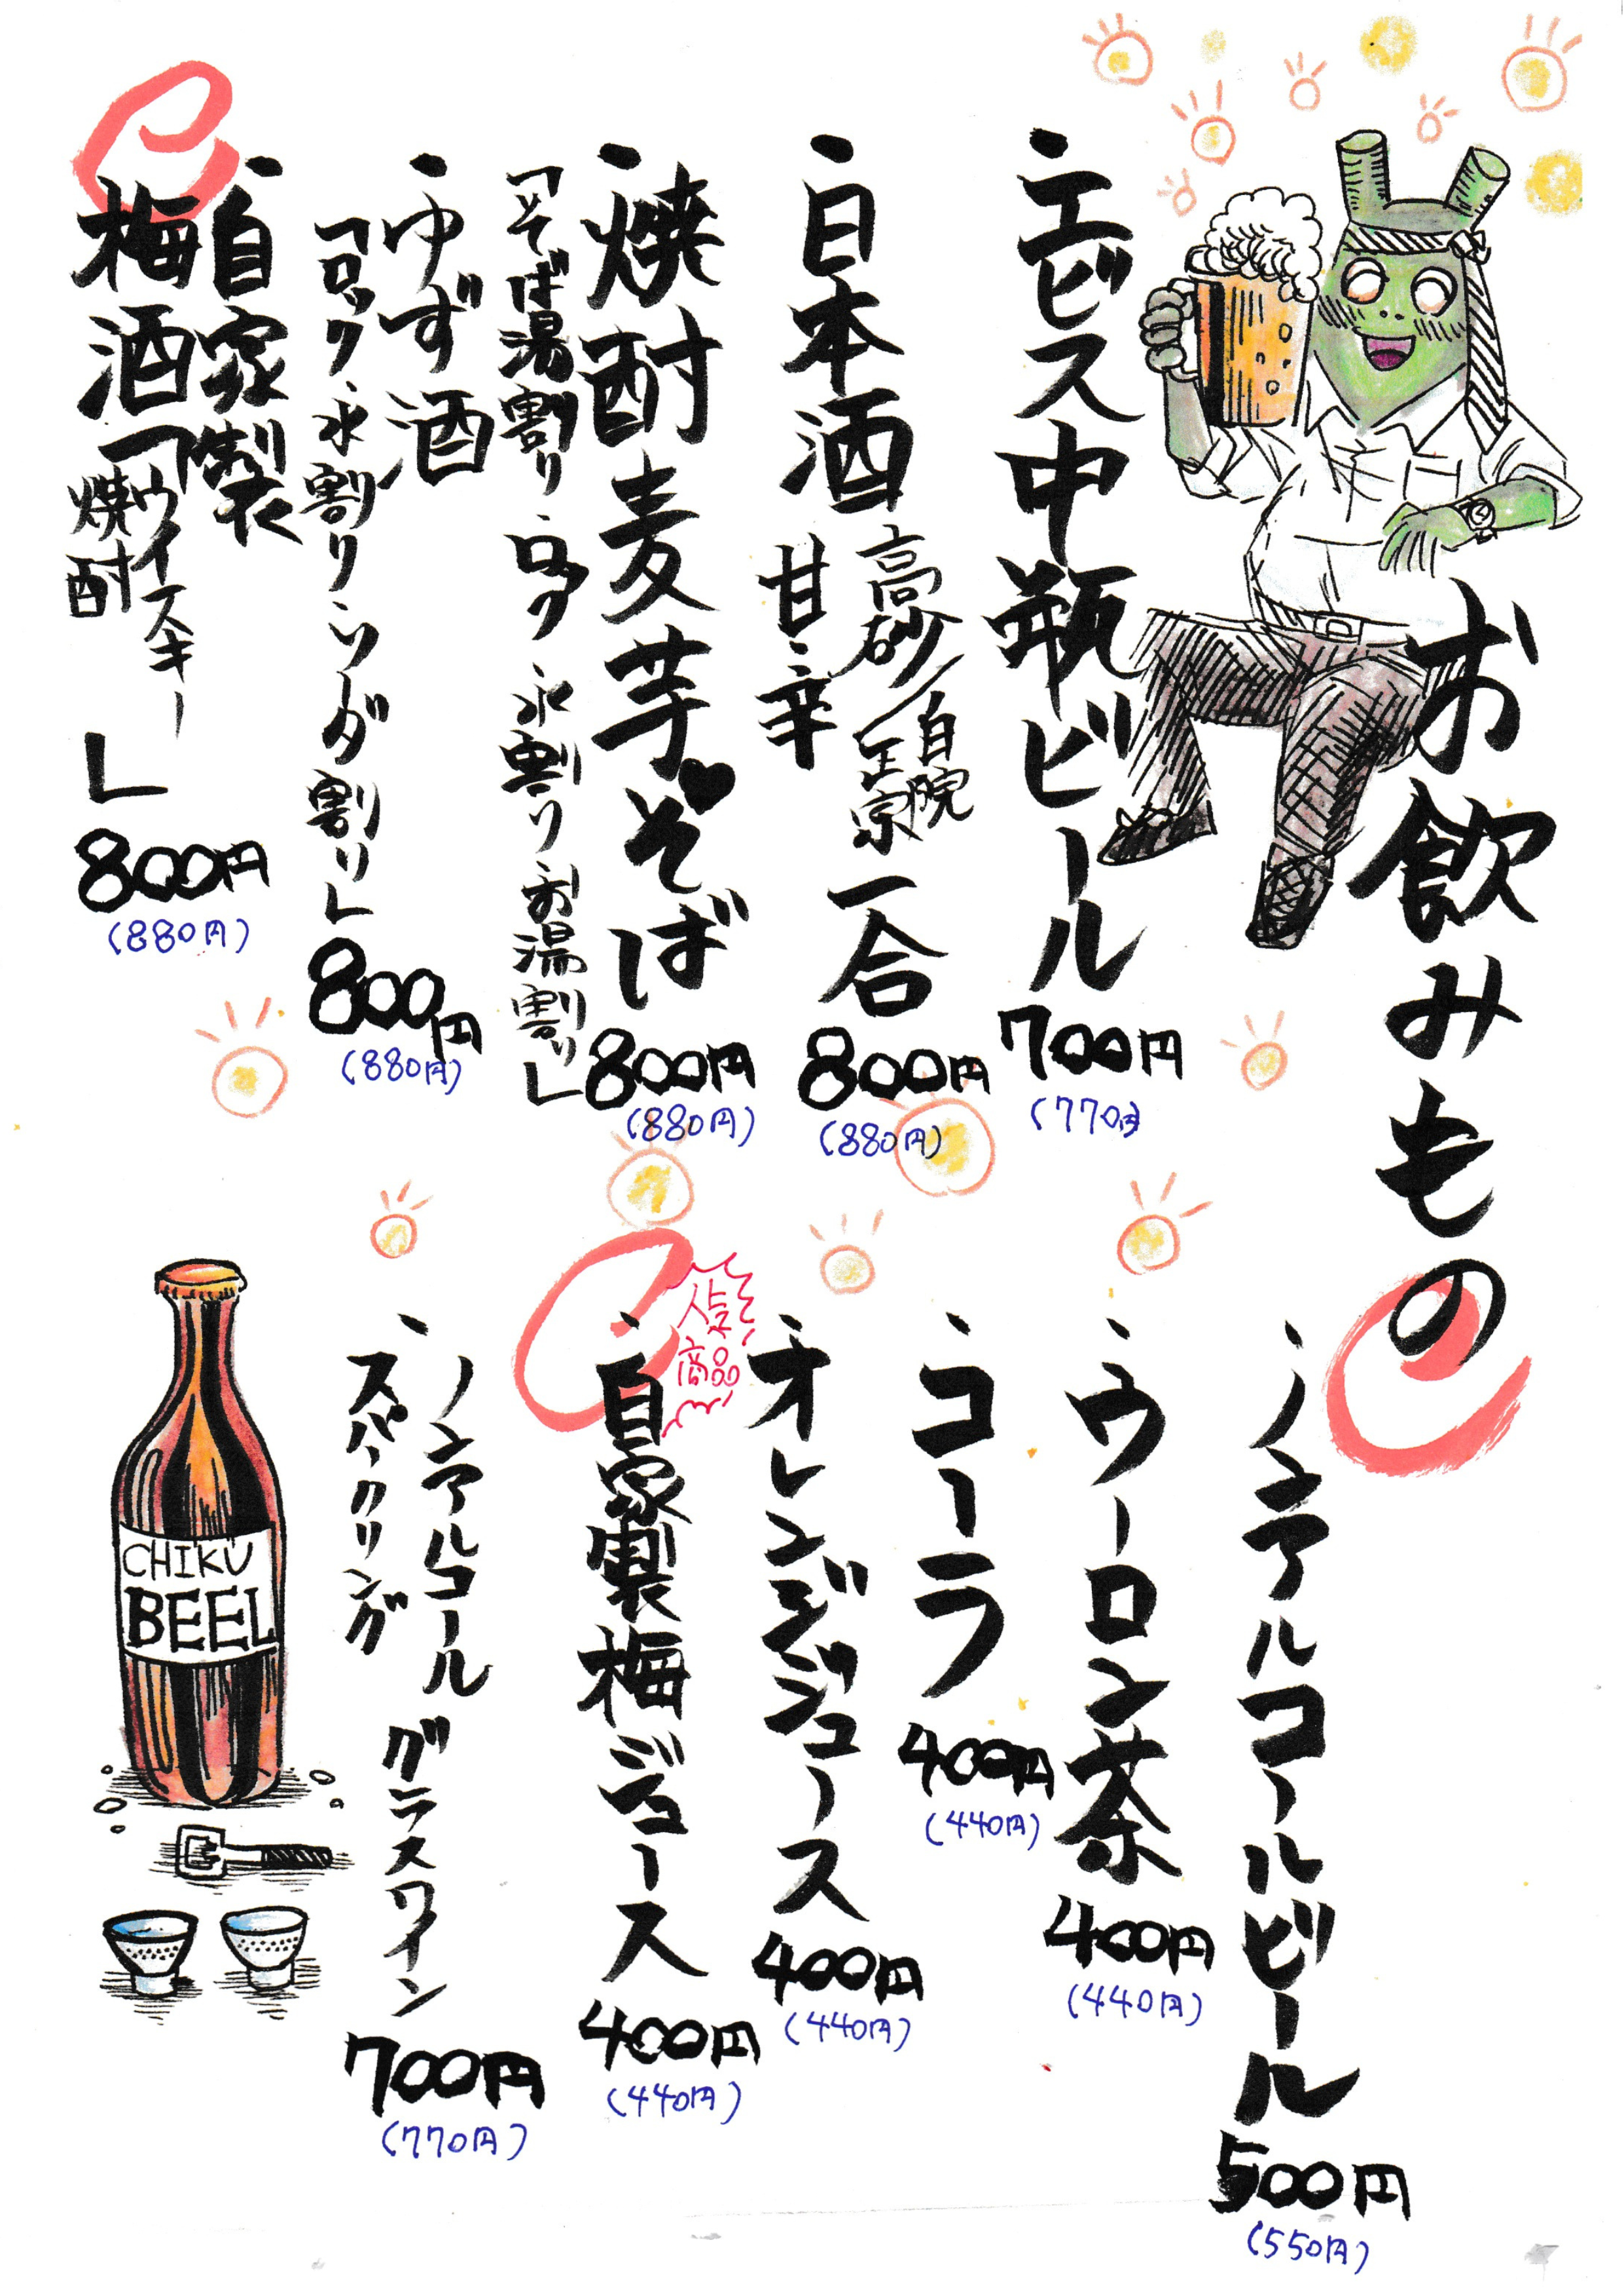 お飲みもの
・エビス中瓶ビール 700円
(770円)
・日本酒 高砂/白隠正宗 一合 800円
甘・辛
(880円)
・焼酎 麦 芋♥そば 800円
(880円)
「そば湯割り・ロック 水割り・お湯割り」
・ゆず酒
「ロック・水割り・ソーダ割り」800円
(880円)
・自家製
梅酒「ウイスキー
焼酎」800円
(880円)
・ノンアルコールビール 500円
(550円)
・ウーロン茶 400円
(440円)
・コーラ 400円
(440円)
・オレンジジュース 400円
(440円)
人気商品
・自家製梅ジュース 400円
(440円)
・ノンアルコール
スパークリング
グラスワイン 700円
(770円)
CHIKU
BEEL